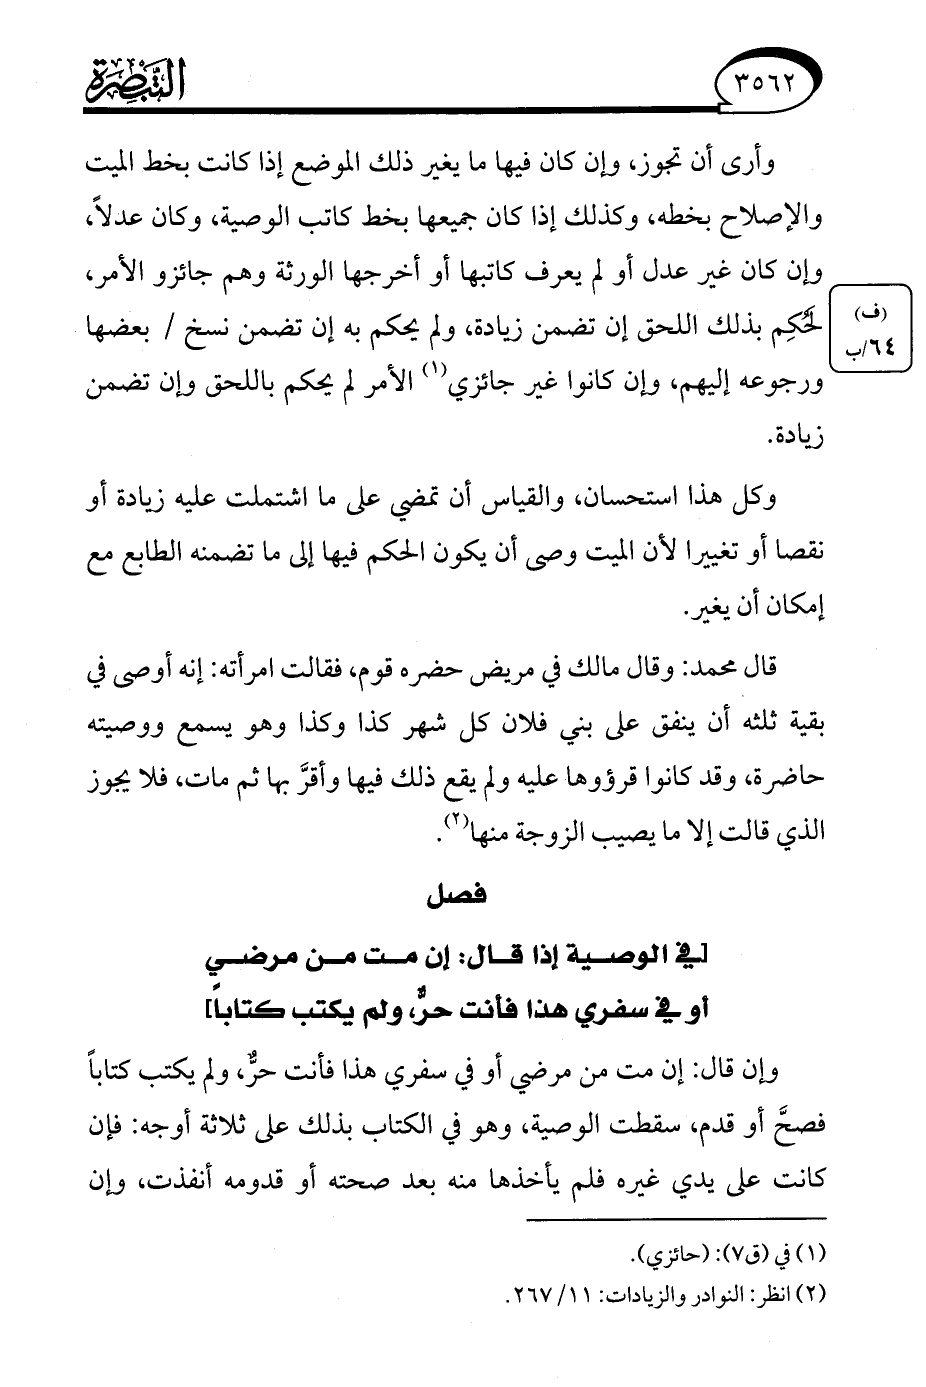 ٣٥٦٢
التبصرة
وأرى أن تجوز، وإن كان فيها ما يغير ذلك الموضع إذا كانت بخط الميت
والإصلاح بخطه، وكذلك إذا كان جميعها بخط كاتب الوصية، وكان عدلاً،
وإن كان غير عدل أو لم يعرف كاتبها أو أخرجها الورثة وهم جائزو الأمر،
لَحُكِم بذلك اللحق إن تضمن زيادة، ولم يحكم به إن تضمن نسخ / بعضها
(ف)
٦٤/ب
ورجوعه إليهم، وإن كانوا غير جائزي(١) الأمر لم يحكم باللحق وإن تضمن
زيادة.
وكل هذا استحسان، والقياس أن تمضي على ما اشتملت عليه زيادة أو
نقصا أو تغييرا لأن الميت وصى أن يكون الحكم فيها إلى ما تضمنه الطابع مع
إمكان أن يغير.
قال محمد: وقال مالك في مريض حضره قوم، فقالت امرأته: إنه أوصى في
بقية ثلثه أن ينفق على بني فلان كل شهر كذا وكذا وهو يسمع ووصيته
حاضرة، وقد كانوا قرؤوها عليه ولم يقع ذلك فيها وأقرَّ بها ثم مات، فلا يجوز
الذي قالت إلا ما يصيب الزوجة منها(٢).
فصل
[في الوصية إذا قال: إن مت من مرضي
أو في سفري هذا فأنت حرٌّ، ولم يكتب كتاباً]
وإن قال: إن مت من مرضي أو في سفري هذا فأنت حرٌّ، ولم يكتب كتاباً
فصحَّ أو قدم، سقطت الوصية، وهو في الكتاب بذلك على ثلاثة أوجه: فإن
كانت على يدي غيره فلم يأخذها منه بعد صحته أو قدومه أنفذت، وإن
(١) في (ق٧): (حائزي).
(٢) انظر: النوادر والزيادات: ١١/ ٢٦٧.